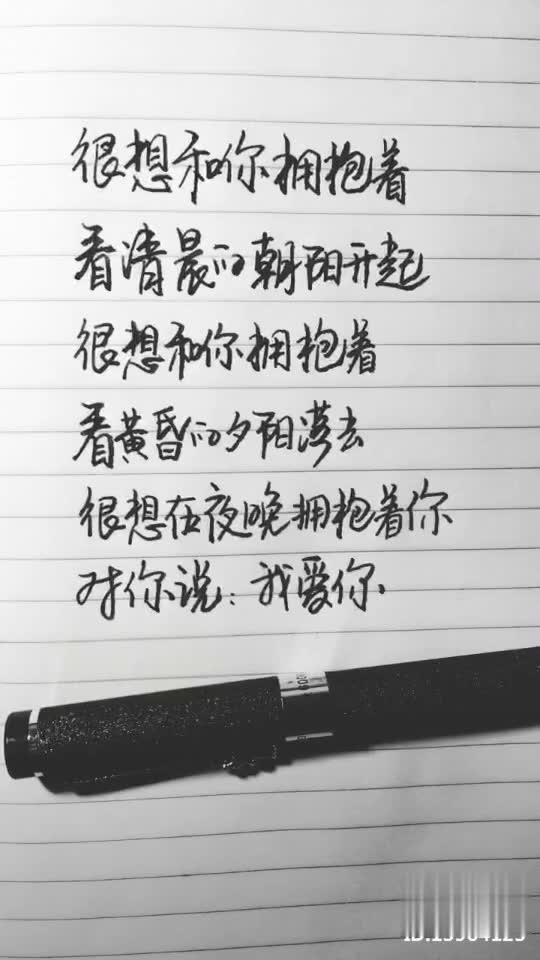 很想和你拥抱着
看清晨的朝阳升起
很想和你拥抱着
看黄昏的夕阳落去
很想在夜晚拥抱着你
对你说：我爱你.